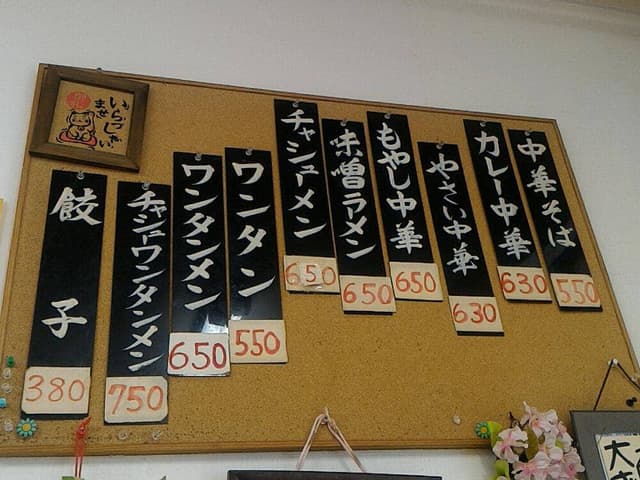 中華そば
550
カレー中華
630
やさい中華
630
もやし中華
650
味噌ラーメン
650
チャシューメン
650
ワンタン
550
ワンタンメン
650
チャシューワンタンメン
750
餃子
380
いらっしゃい
ませ
大